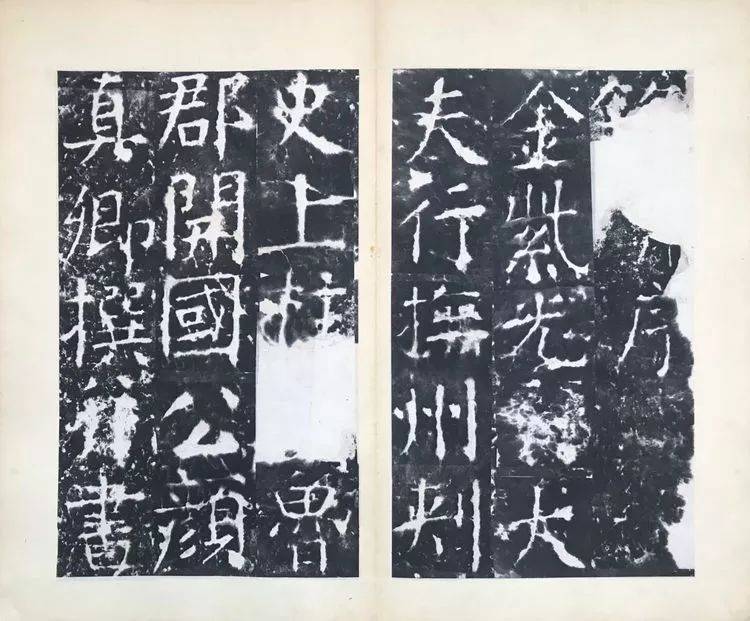 金紫光祿大
夫行撫州刾
史上柱魯
郡開國公顏
真卿撰并書